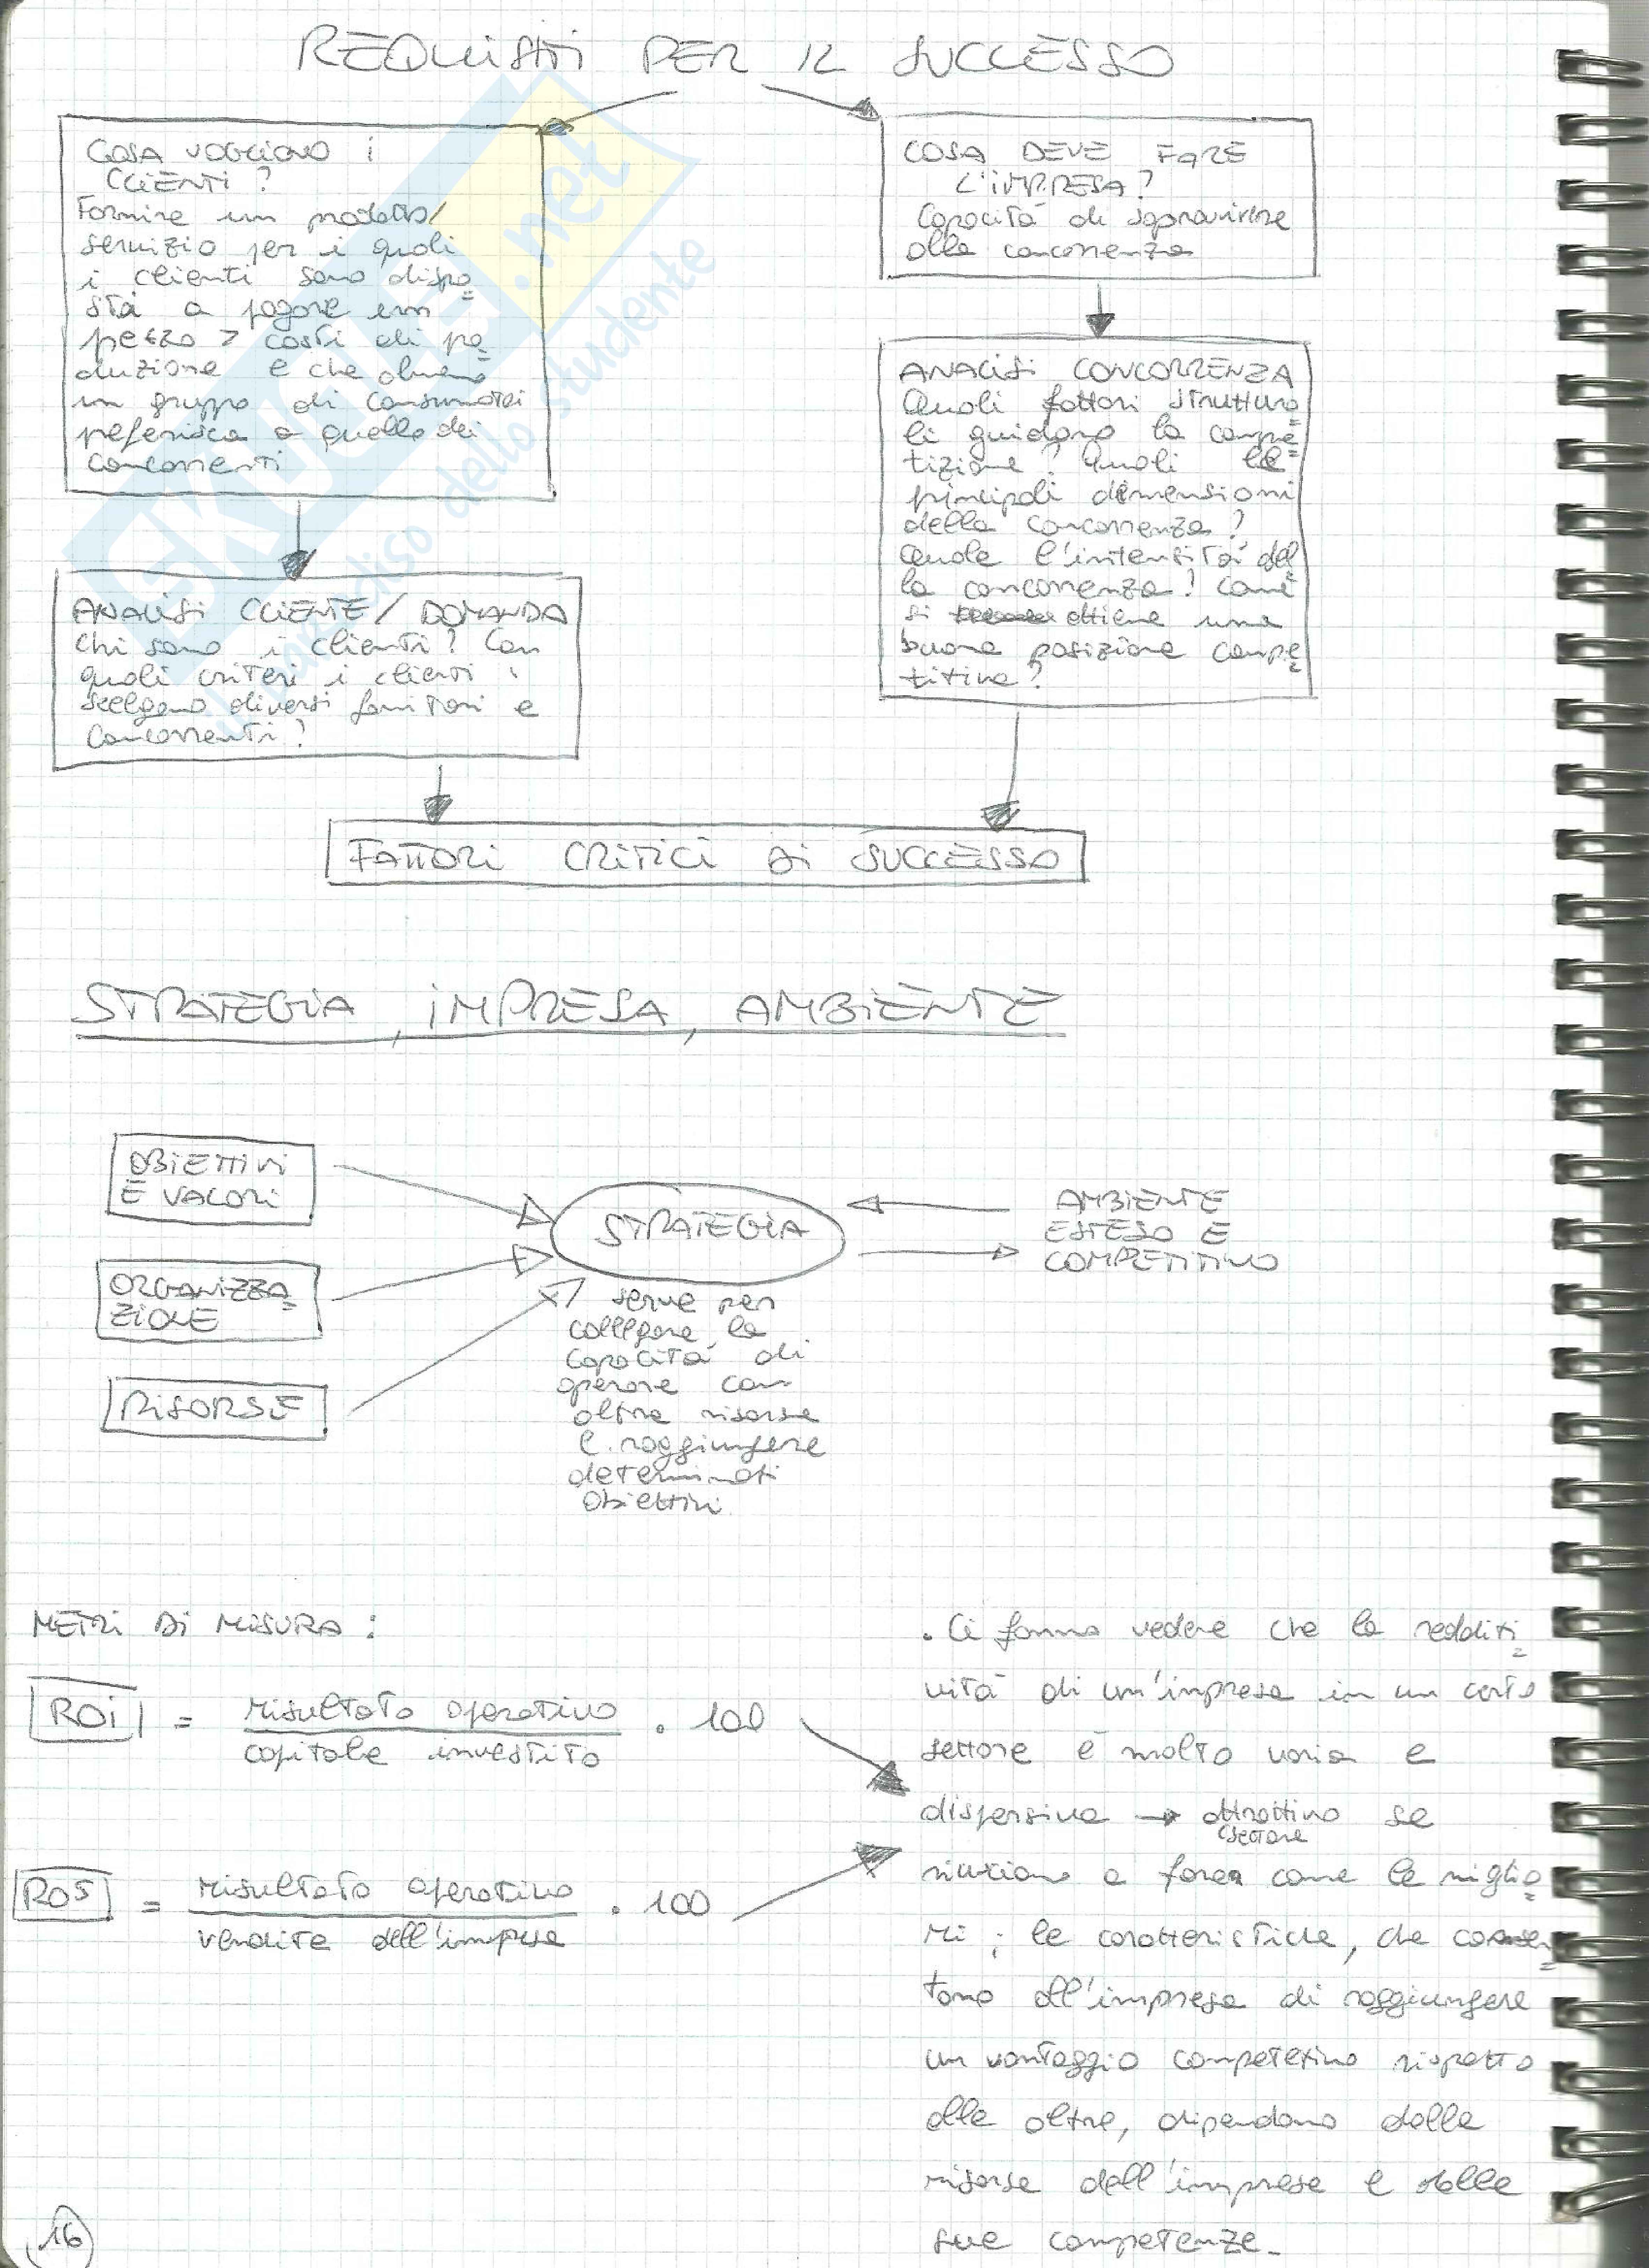 REQUISITI PER IL SUCCESSO
COSA VOGLIONO i
CLIENTI ?
Fornire un prodotto/
servizio per i quali
i clienti sono dispo
sti a pagare un
prezzo > costi di pro
duzione e che almeno
un gruppo di consumatori
preferisca a quello dei
concorrenti
ANALISI CLIENTE / DOMANDA
Chi sono i clienti ? Con
quali criteri i clienti
scelgono diversi fornitori e
concorrenti ?
COSA DEVE FARE
L'IMPRESA ?
Capacità di sopravvivere
alla concorrenza
ANALISI CONCORRENZA
Quali fattori struttura
li guidano la compe
tizione ? Quali le
principali dimensioni
della concorrenza ?
Quale l'intensità del
la concorrenza ? Come
si ottiene una
buona posizione compe
titiva ?
FATTORI CRITICI di SUCCESSO
STRATEGIA, IMPRESA, AMBIENTE
OBIETTIVI
E VALORI
ORGANIZZA
ZIONE
RISORSE
STRATEGIA
serve per
collegare la
capacità di
operare con
altre risorse
e raggiungere
determinati
obiettivi
AMBIENTE
ESTESO E
COMPETITIVO
METRI DI MISURA :
ROI = risultato operativo . 100
capitale investito
ROS = risultato operativo . 100
vendite dell'impresa
. Ci fanno vedere che la redditi
vità di un'impresa in un certo
settore è molto varia e
dispersiva → attrattivo se
settore
riusciamo a fare come le miglio
ri ; le caratteristiche, che consen
tono all'impresa di raggiungere
un vantaggio competetivo rispetto
alle altre, dipendono dalle
risorse dell'impresa e dalle
sue competenze.
16
SKUOLA.net
il paradiso dello studente